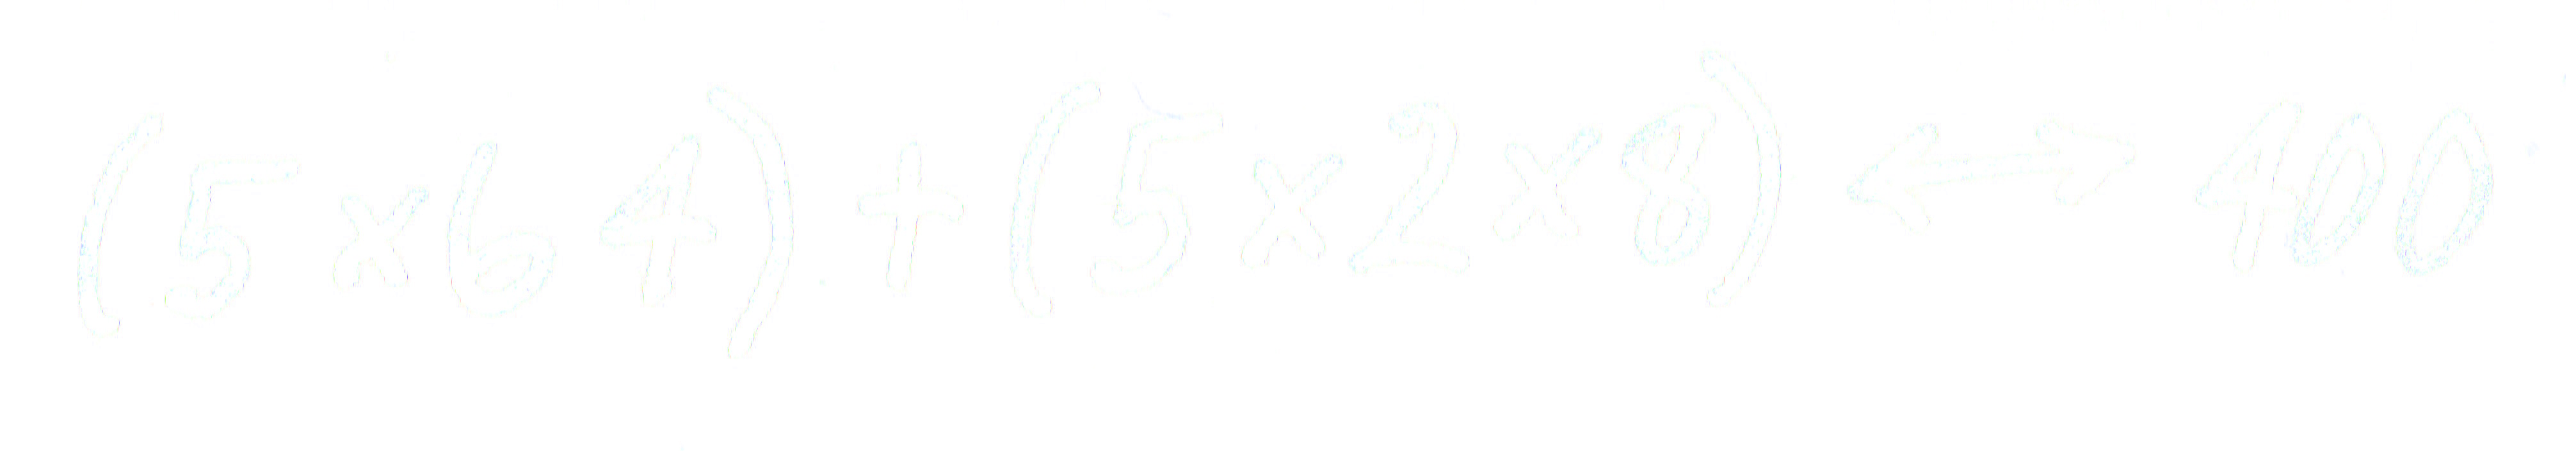 (5×64)+(5×2×8) ↔ 400